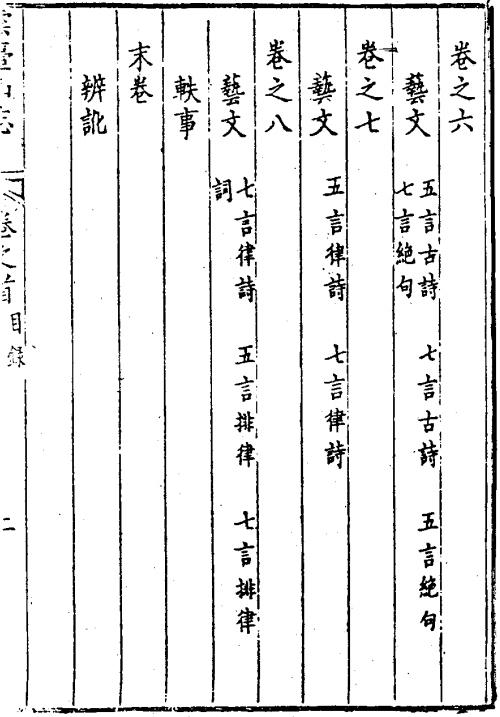 卷之六
藝文
五言古詩 七言古詩 五言絶句
七言絶句
卷之七
藝文
五言律詩 七言律詩
卷之八
藝文
七言律詩 五言排律 七言排律
詞
軼事
末卷
辨訛
卷之首 目錄
二